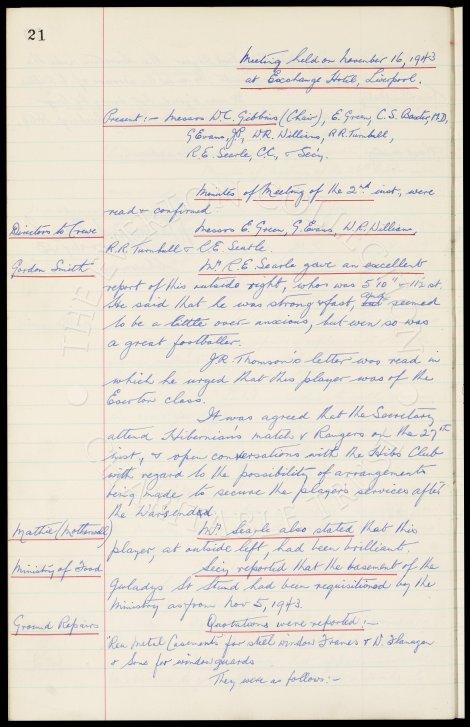 21
Meeting held on November 16, 1943
at Exchange Hotel, Liverpool.
Present:- Messrs W.C. Gibbins (Chair), E. Green, C.S. Baxter, M.D,
G Evans, J.P, W.R. Williams, R.R. Turnbull,
R.E. Searle, C.C, & Secy.
Minutes of Meeting of the 2nd inst, were
read & confirmed
Directors to Crewe
Messrs E. Green, G. Evans, W.R. Williams,
R.R. Turnbull & R.E. Searle.
Gordon Smith
Mr. R.E. Searle gave an excellent
report of this outside right, who was 5'10" & 11½ st.
He said that he was strong & fast, seemed
to be a little over anxious, but even so was
a great footballer.
J.R. Thomson's letter was read in
which he urged that this player was of the
Everton class.
It was agreed that the Secretary
attend Hibernian's match v Rangers on the 27th
inst, & open conversations with the Hibs Club
with regard to the possibility of arrangements
being made to secure the player's services after
the War's ended.
Mathie (Motherwell)
Mr. Searle also stated that this
player, at outside left, had been brilliant.
Ministry of Food
Secy reported that the basement of the
Guladys St Stand had been requisitioned by the
Ministry as from Nov 5, 1943.
Ground Repairs
Quotations were reported:-
Rea Metal Casements for steel window Frames & D. Flanagan
& Sons for window guards
They were as follows:-